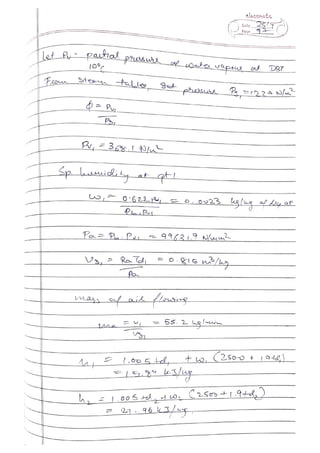 classmate
Date
Page 93
let Pv - partial pressure of water vapour at DBT
10°c
From steam table, sat pressure Ps₁ = 1228 N/m²
ϕ = Pv₁
Ps₁
Pv₁ = 368.1 N/m²
Sp humidity at pt 1
ω₁ = 0.622 Pv₁ = 0.0023 kg/kg of dry air
Pb - Pv₁
Pa = Pb - Pv₁ = 99631.9 N/m²
Vs₁ = Ra Td₁ = 0.815 m³/kg
Pa
mass of air flowing
ma = V₁ = 55.2 kg/min
Vs₁
h₁ = 1.005 td₁ + ω₁ (2500 + 1.9td₁)
= 15.84 kJ/kg
h₂ = 1.005 td₂ + ω₂ (2500 + 1.9td₂)
= 21.96 kJ/kg,